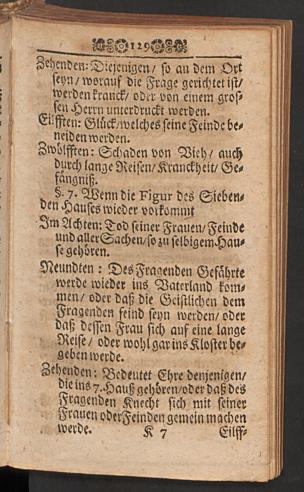 129
Zehenden: Diejenigen/ so an dem Ort
seyn/ worauf die Frage gerichtet ist/
werden kranck/ oder von einem gros-
sen Herrn unterdruckt werden.
Eilfften: Glück/welches seine Feinde be-
neiden werden.
Zwölfften: Schaden von Vieh/ auch
durch lange Reisen/ Kranckheit/ Ge-
fängniß.
§. 7. Wenn die Figur des Sieben-
den Hauses wieder vorkommt
Im Achten: Tod seiner Frauen/ Feinde
und aller Sachen/ so zu selbigem Hau-
se gehören.
Neundten: Des Fragenden Gefährte
werde wieder ins Vaterland kom-
men/ oder daß die Geistlichen dem
Fragenden feind seyn werden/ oder
daß dessen Frau sich auf eine lange
Reise/ oder wohl gar ins Kloster be-
geben werde.
Zehenden: Bedeutet Ehre denjenigen/
die ins 7. Hauß gehören/oder daß des
Fragenden Knecht sich mit seiner
Frauen oder Feinden gemein machen
werde. K 7 Eilff-